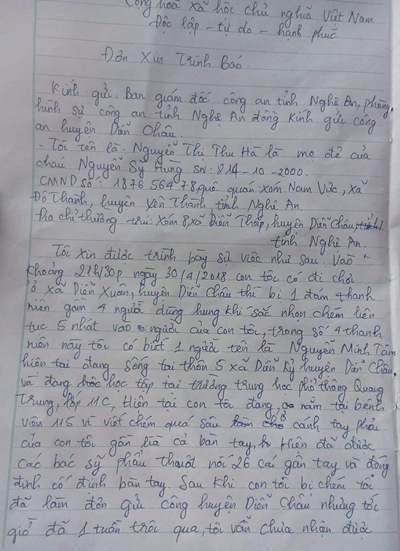 Cộng hoà xã hội chủ nghĩa Việt Nam
Độc lập - tự do - hạnh phúc
Đơn Xin Trình Báo
Kính gửi. Ban giám đốc công an tỉnh Nghệ An, phòng
hình sự công an tỉnh Nghệ An đồng kính gửi công
an huyện Diễn Châu.
- Tôi tên là Nguyễn Thị Thu Hà là mẹ đẻ của
cháu Nguyễn Sỹ Hùng SN: 14-10-2000.
CMND số: quê quán xóm Nam Vực, xã
Đô Thành, huyện Yên Thành, tỉnh Nghệ An.
Địa chỉ thường trú: Xóm 8 xã Diễn Tháp, huyện Diễn Châu,
tỉnh Nghệ An.
Tôi xin được trình bày sự việc như sau. Vào
khoảng 21h/30p ngày 30/4/2018 con tôi có đi chơi
ở xã Diễn Xuân, huyện Diễn Châu thì bị 1 đám thanh
niên gồm 4 người dùng hung khí sắc nhọn chém liên
tục 5 nhát vào người của con tôi, trong số 4 thanh
niên này tôi có biết 1 người tên là Nguyễn Minh Tâm
hiện tại đang sống tại thôn 5 xã Diễn Kỷ huyện Diễn Châu
và đang học tập tại trường trung học phổ thông Quang
Trung, lớp 11C, Hiện tại con tôi đang nằm tại bệnh
viện 115 vì vết chém quá sâu cánh tay phải
của con tôi gần lìa cả bàn tay, Hiện đã được
các bác sỹ phẫu thuật nối 26 cái gân tay và đóng
đinh cố định bàn tay. Sau khi con tôi bị chém tôi
đã làm đơn gửi công huyện Diễn Châu nhưng tới
giờ đã 1 tuần trôi qua, tôi vẫn chưa nhận được